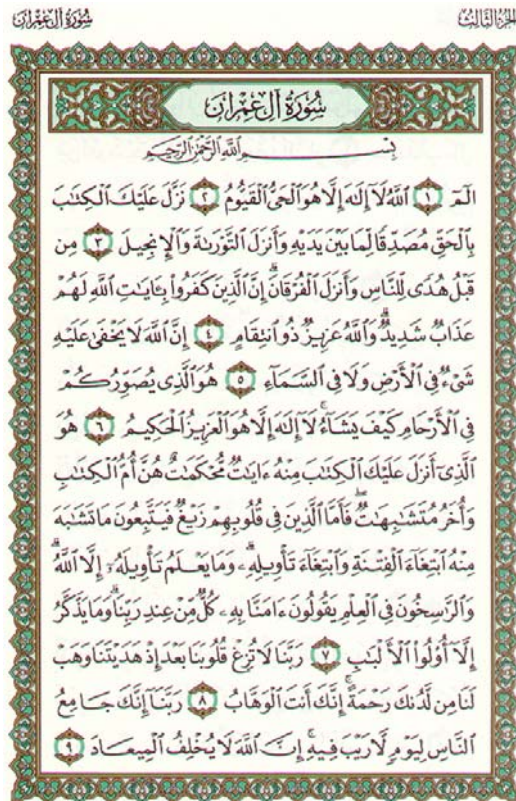 الجزء الثالث
سُورَةُ آلِ عِمْرَانَ
سُورَةُ آلِ عِمْرَانَ
بِسْمِ اللَّهِ الرَّحْمَٰنِ الرَّحِيمِ
الٓمٓ ١ ٱللَّهُ لَآ إِلَٰهَ إِلَّا هُوَ ٱلْحَىُّ ٱلْقَيُّومُ ٢ نَزَّلَ عَلَيْكَ ٱلْكِتَٰبَ
بِٱلْحَقِّ مُصَدِّقًا لِّمَا بَيْنَ يَدَيْهِ وَأَنزَلَ ٱلتَّوْرَىٰةَ وَٱلْإِنجِيلَ ٣ مِن
قَبْلُ هُدًى لِّلنَّاسِ وَأَنزَلَ ٱلْفُرْقَانَ ۗ إِنَّ ٱلَّذِينَ كَفَرُوا۟ بِـَٔايَٰتِ ٱللَّهِ لَهُمْ
عَذَابٌ شَدِيدٌ ۗ وَٱللَّهُ عَزِيزٌ ذُو ٱنتِقَامٍ ٤ إِنَّ ٱللَّهَ لَا يَخْفَىٰ عَلَيْهِ
شَىْءٌ فِى ٱلْأَرْضِ وَلَا فِى ٱلسَّمَآءِ ٥ هُوَ ٱلَّذِى يُصَوِّرُكُمْ
فِى ٱلْأَرْحَامِ كَيْفَ يَشَآءُ ۚ لَآ إِلَٰهَ إِلَّا هُوَ ٱلْعَزِيزُ ٱلْحَكِيمُ ٦ هُوَ
ٱلَّذِىٓ أَنزَلَ عَلَيْكَ ٱلْكِتَٰبَ مِنْهُ ءَايَٰتٌ مُّحْكَمَٰتٌ هُنَّ أُمُّ ٱلْكِتَٰبِ
وَأُخَرُ مُتَشَٰبِهَٰتٌ ۖ فَأَمَّا ٱلَّذِينَ فِى قُلُوبِهِمْ زَيْغٌ فَيَتَّبِعُونَ مَا تَشَٰبَهَ
مِنْهُ ٱبْتِغَآءَ ٱلْفِتْنَةِ وَٱبْتِغَآءَ تَأْوِيلِهِۦ ۗ وَمَا يَعْلَمُ تَأْوِيلَهُۥٓ إِلَّا ٱللَّهُ ۗ
وَٱلرَّٰسِخُونَ فِى ٱلْعِلْمِ يَقُولُونَ ءَامَنَّا بِهِۦ كُلٌّ مِّنْ عِندِ رَبِّنَا ۗ وَمَا يَذَّكَّرُ
إِلَّآ أُو۟لُوا۟ ٱلْأَلْبَٰبِ ٧ رَبَّنَا لَا تُزِغْ قُلُوبَنَا بَعْدَ إِذْ هَدَيْتَنَا وَهَبْ
لَنَا مِن لَّدُنكَ رَحْمَةً ۚ إِنَّكَ أَنتَ ٱلْوَهَّابُ ٨ رَبَّنَآ إِنَّكَ جَامِعُ
ٱلنَّاسِ لِيَوْمٍ لَّا رَيْبَ فِيهِ ۚ إِنَّ ٱللَّهَ لَا يُخْلِفُ ٱلْمِيعَادَ ٩